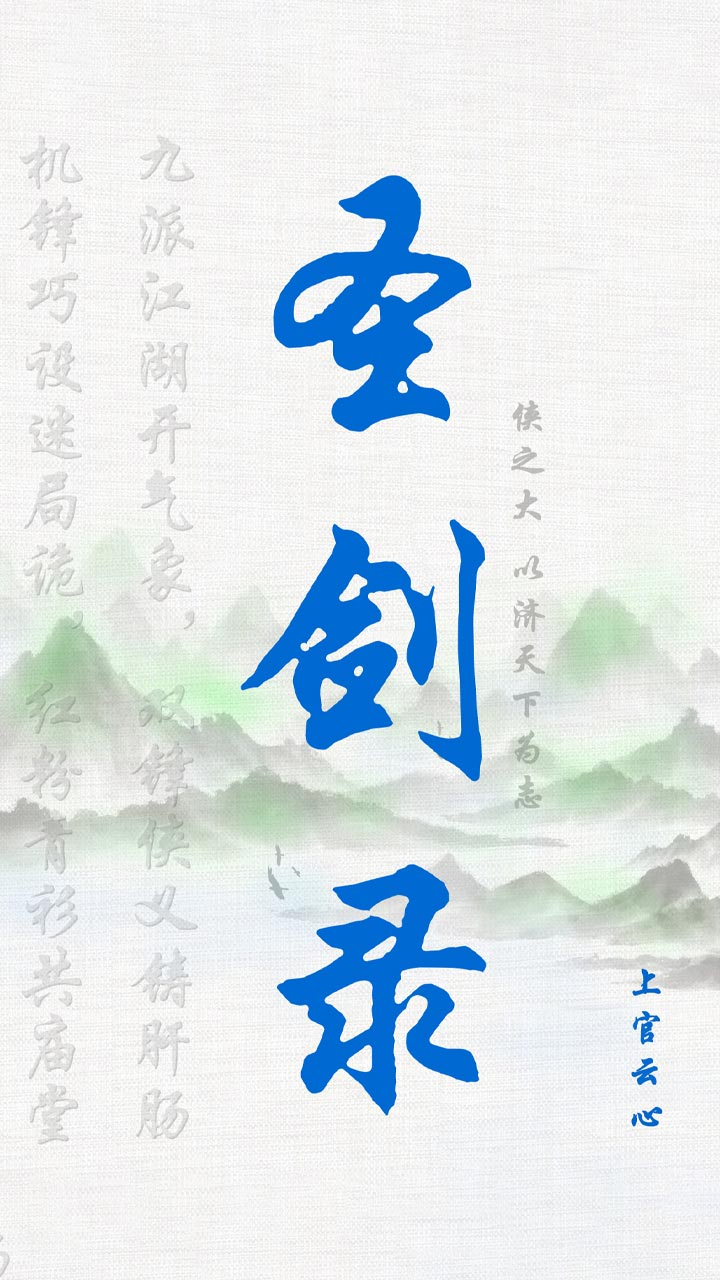 圣剑录
侠之大 以济天下为志
上官云心
九派江湖开气象，双锋侠义铸肝肠
机锋巧设迷局诡，红粉青衫共庙堂